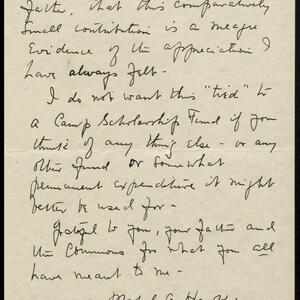 Father, that this comparatively
small contribution is a meagre
evidence of the appreciation I
have always felt.
I do not want this "tied" to
a Camp Scholarship Fund if you
think of any thing else - or any
other fund or somewhat
permanent expenditure it might
better be used for -
Grateful to you, your father and
the Commons for what you all
have meant to me -